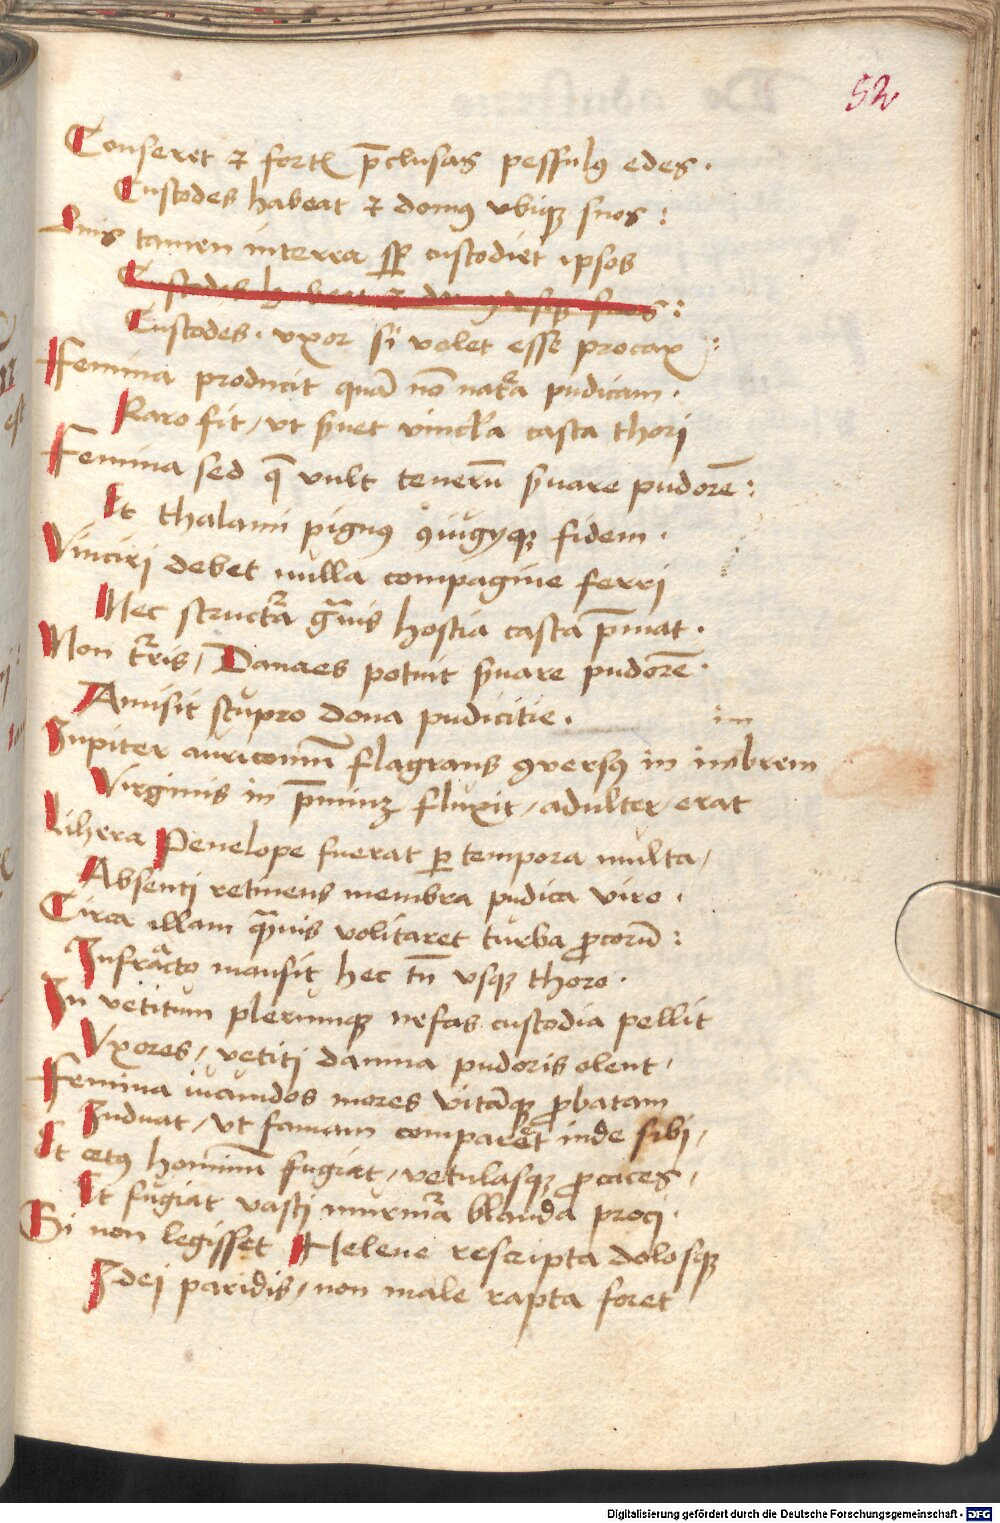 52
Conseret ⁊ fortꝭ p̄clusas pessulꝰ edes.
Custodes habeat ⁊ domꝰ vbiqꝫ suos:
Quis tamen interea sꝑ custodiet ipsos
Custodes habeat ⁊ domꝰ vbiqꝫ suos:
Custodes. vxor si volet esse procax:
Femina producit quā nō nat᷑a pudicam.
Raro fit, vt s̄uet vincl'a casta thori
Femina sed q̄ vult tenerū s̄uare pudorē:
Et thalami pignꝰ ꝯiugyqꝫ fidem.
Vinciri debet nulla compagine ferri
Nec struct᷑a g̃uis hostia casta p̄mat.
Non t᷑ris, Danaes potuit s̄uare pudorē.
Amisit stupro dona pudicitie.
im
Jupiter auricomū flagrans ꝯuersꝰ in imbrem
Virginis in p̄miuꝫ fluxit, adulter, erat
Libera Penelope fuerat ꝑ tempora multa,
Absenti retinens membra pudica viro.
Circa illam q̃uis volitaret turba ꝓcorū:
Infracto mansit hec tn̄ vsqꝫ thoro.
In vetitum plerumqꝫ nefas custodia pellit
Vxores, vetiti damna pudoris olent,
Femina iuuandos mores vitāqꝫ ꝓbatam
Induat, vt famam comparet inde sibi,
Et cetꝰ hominū fugiat, vetulasqꝫ ꝓcaces,
Et fugiat vasti murm᷑a blanda proci.
Si non legisset Helene rescripta dolosqꝫ
Idei paridis, non male rapta foret
Digitalisierung gefördert durch die Deutsche Forschungsgemeinschaft - DFG